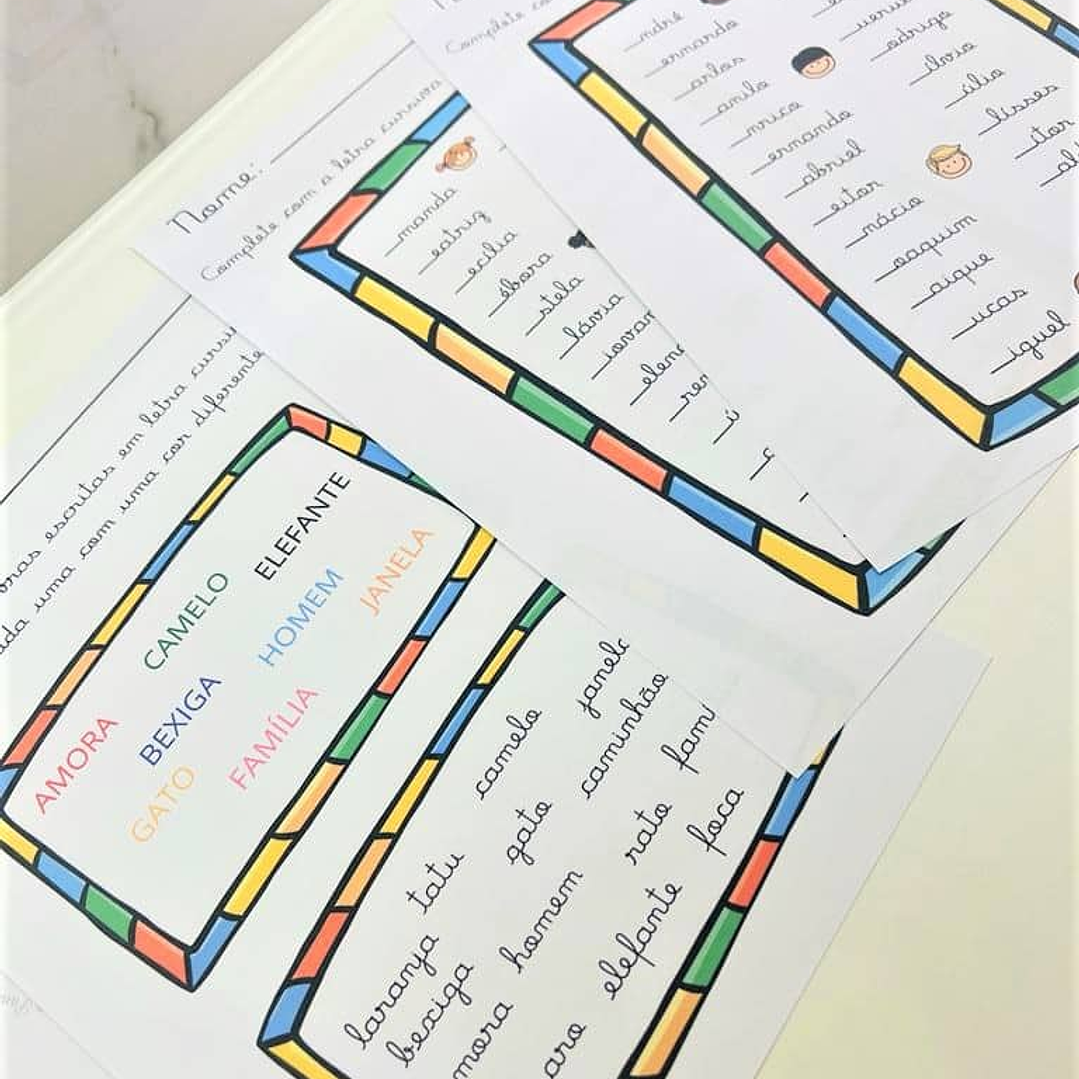 Complete
ndré
ernardo
arlos
anilo
nrico
ernando
abriel
eitor
nácio
oaquim
aique
ucas
iguel
odrigo
ílvio
úlio
lisses
itor
Nome:
Complete com a letra cursiva
manda
eatriz
ecília
ébora
stela
lávia
iovan
elen
escritas em letra cursi
uma com uma cor diferente
AMORA
CAMELO
ELEFANTE
BEXIGA
HOMEM
JANELA
GATO
FAMÍLIA
laranja
tatu
camelo
janela
bexiga
gato
caminhão
mora
homem
rato
famí
aro
elefante
foca